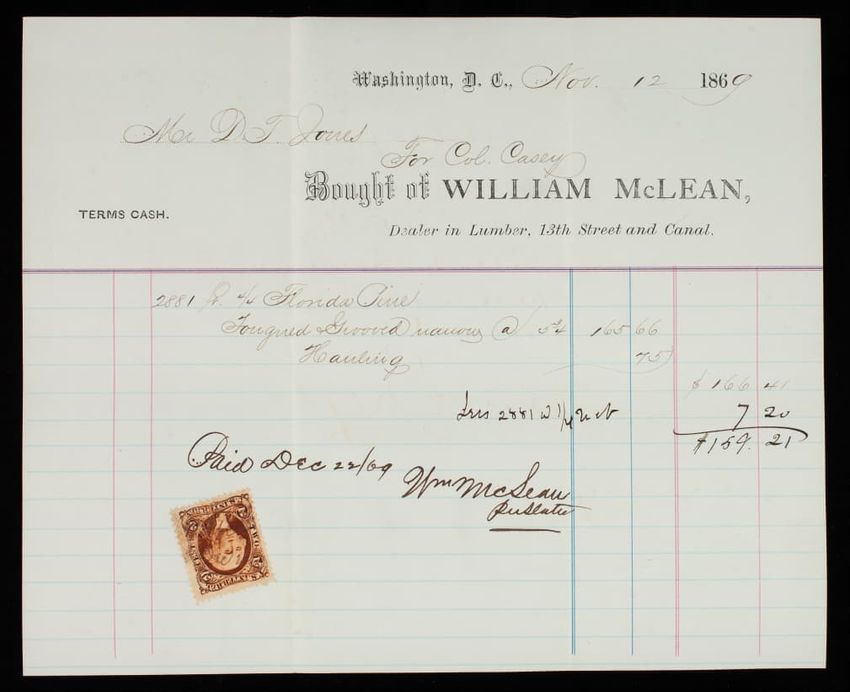 Washington, D. C., Nov. 12 1869
Mr D. T. Jones
For Col. Casey
Bought of WILLIAM McLEAN,
TERMS CASH.
Dealer in Lumber, 13th Street and Canal.
2881 ft. 4/4 Florida Pine
Tongued & Grooved narrow @ 5¾ 165 66
Hauling 75
$166 41
Less 2881 @ 1/4 7 20
$159. 21
Paid Dec 22/69
Wm McLean
TWO